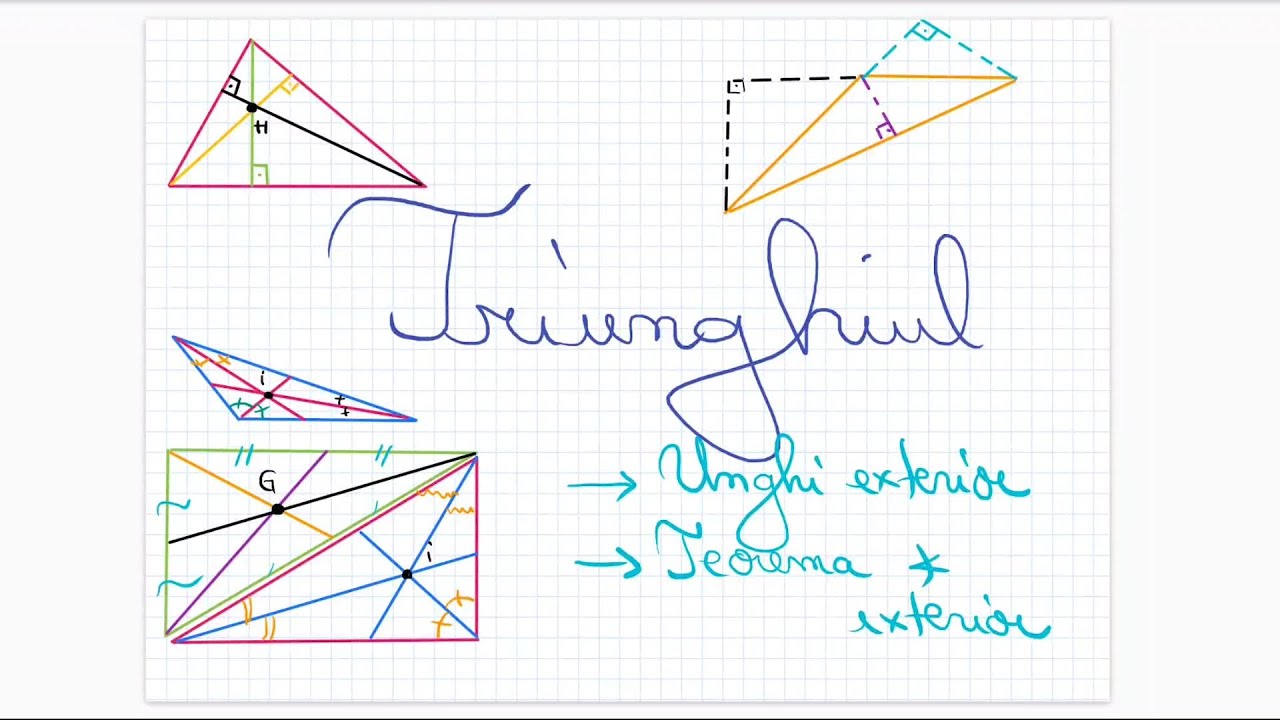 H
Triunghiul
i
G
→ Unghi exterior
i
→ Teorema ∗
exterior